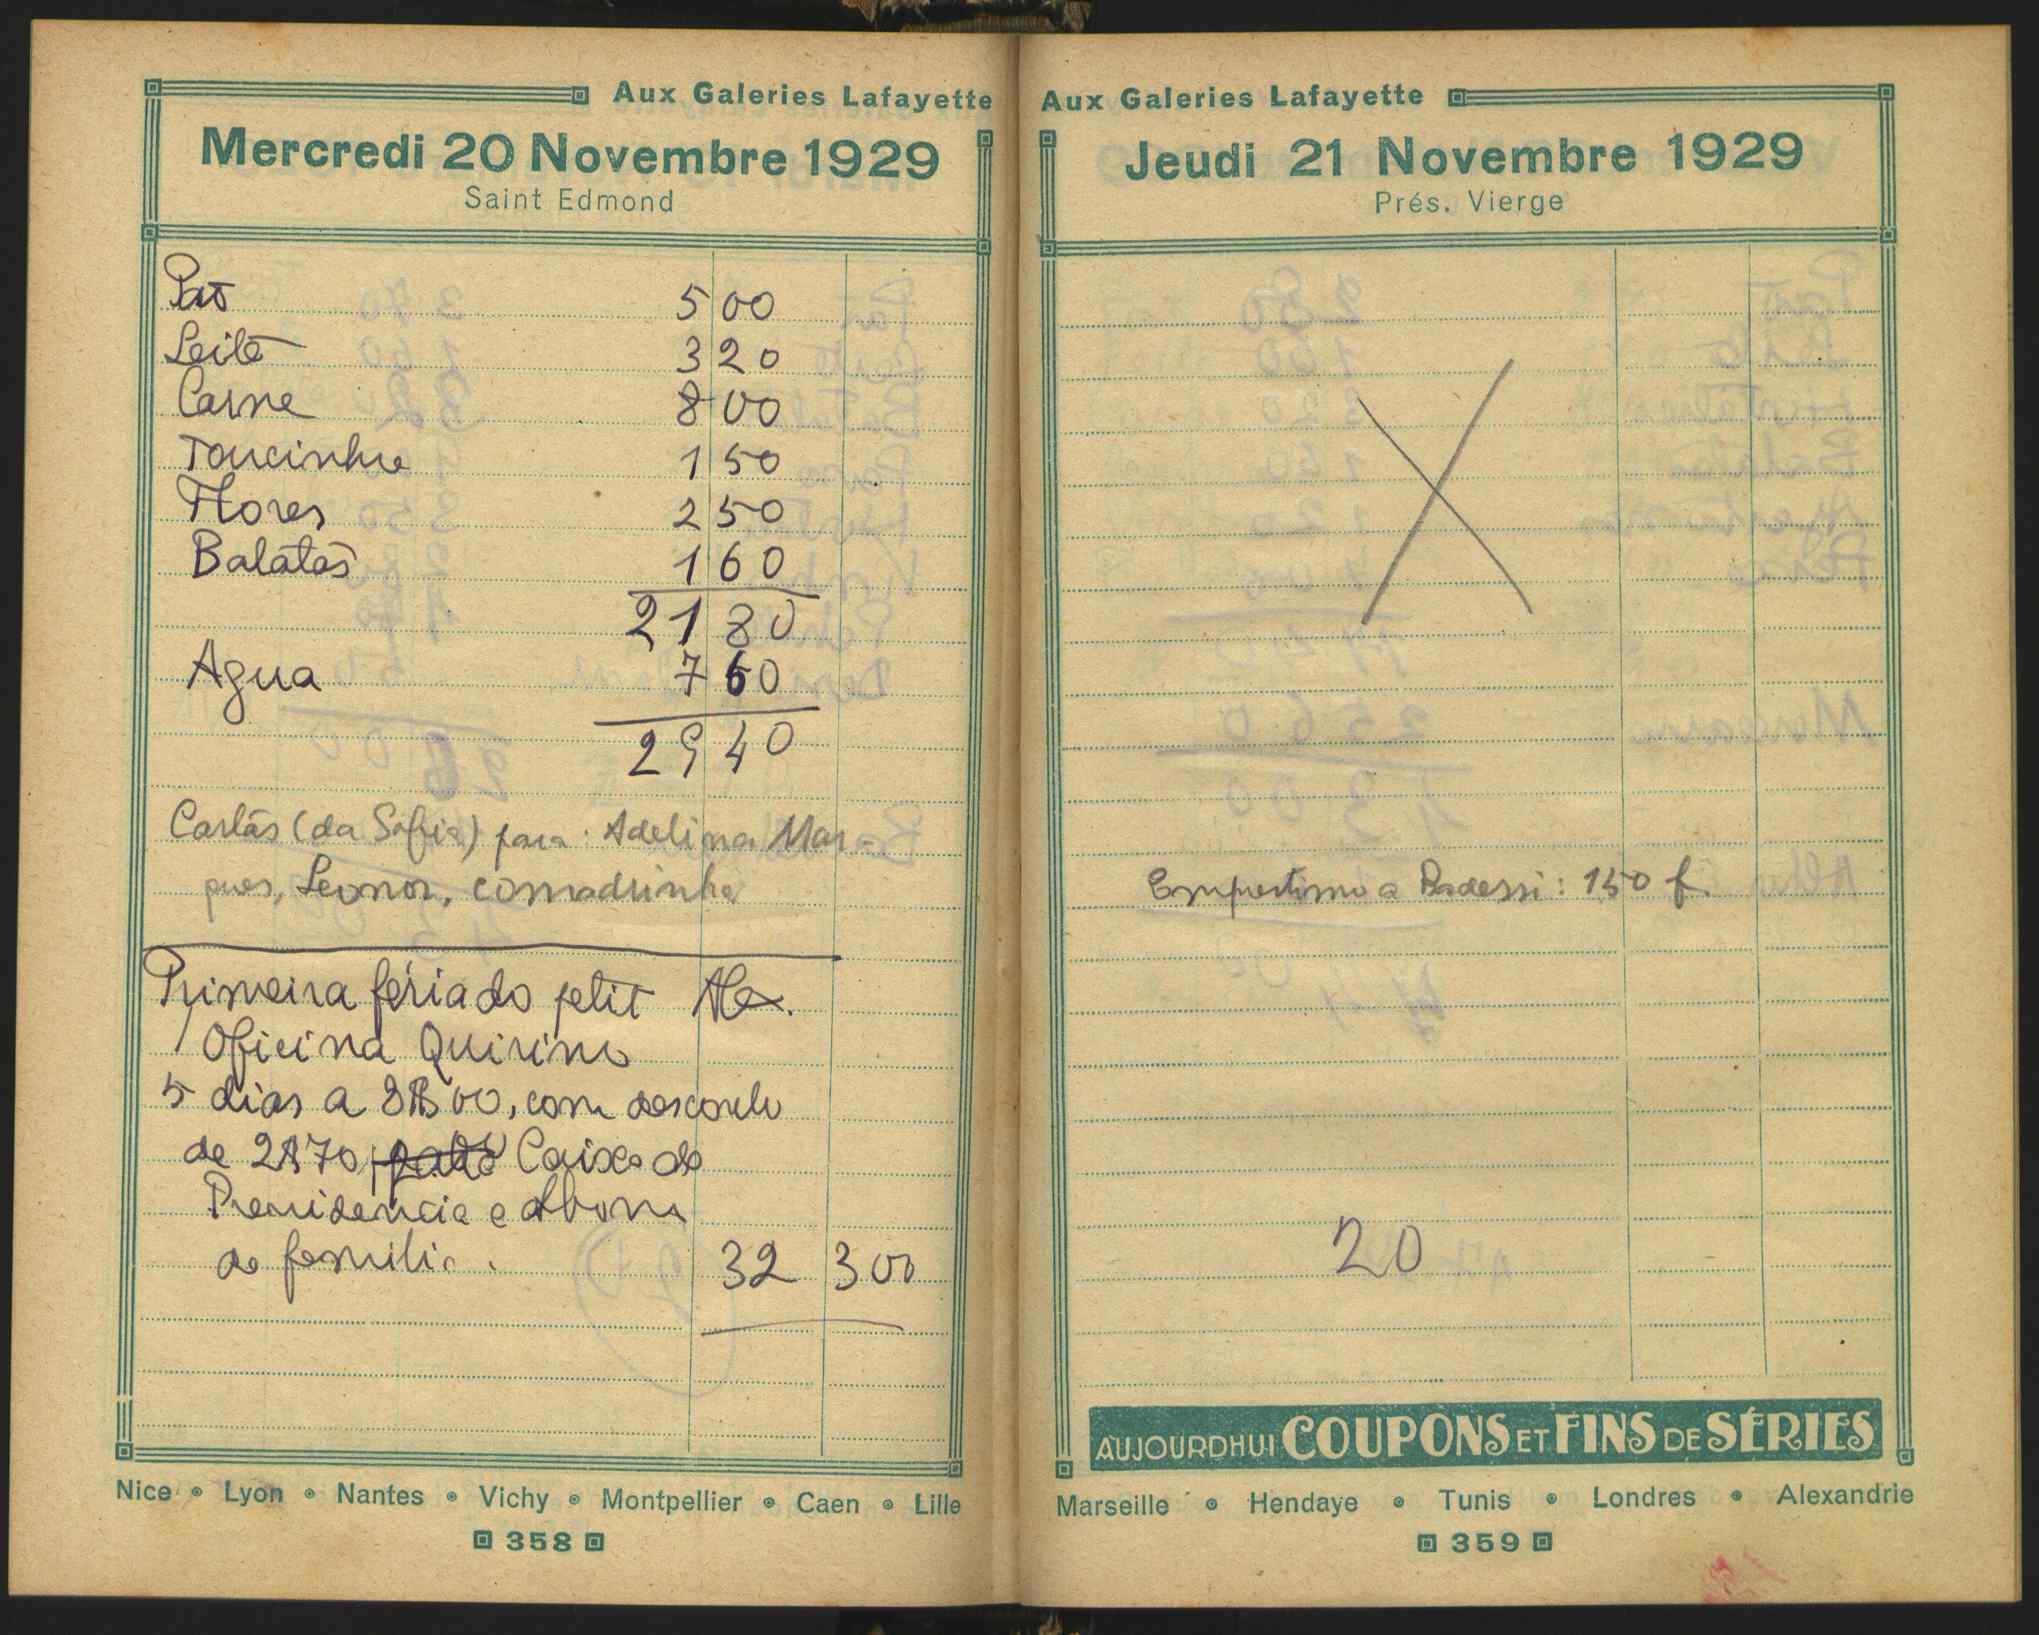 Aux Galeries Lafayette
Mercredi 20 Novembre 1929
Saint Edmond
Pão 500
Leite 320
Carne 800
Toucinho 150
Flores 250
Batatas 160
2180
Agua 760
2940
Cartas (da Sofia) para: Adelina Mar-
ques, Leonor, comadrinha
Primeira féria do petit Alex.
Oficina Quirino
5 dias a 8$00, com desconto
de 2$70, Caixa de
Previdencia e abono
de familia. 32 300
Nice • Lyon • Nantes • Vichy • Montpellier • Caen • Lille
358
Aux Galeries Lafayette
Jeudi 21 Novembre 1929
Prés. Vierge
Emprestimo a : 150 f.
20
AUJOURDHUI COUPONS ET FINS DE SÉRIES
Marseille • Hendaye • Tunis • Londres • Alexandrie
359